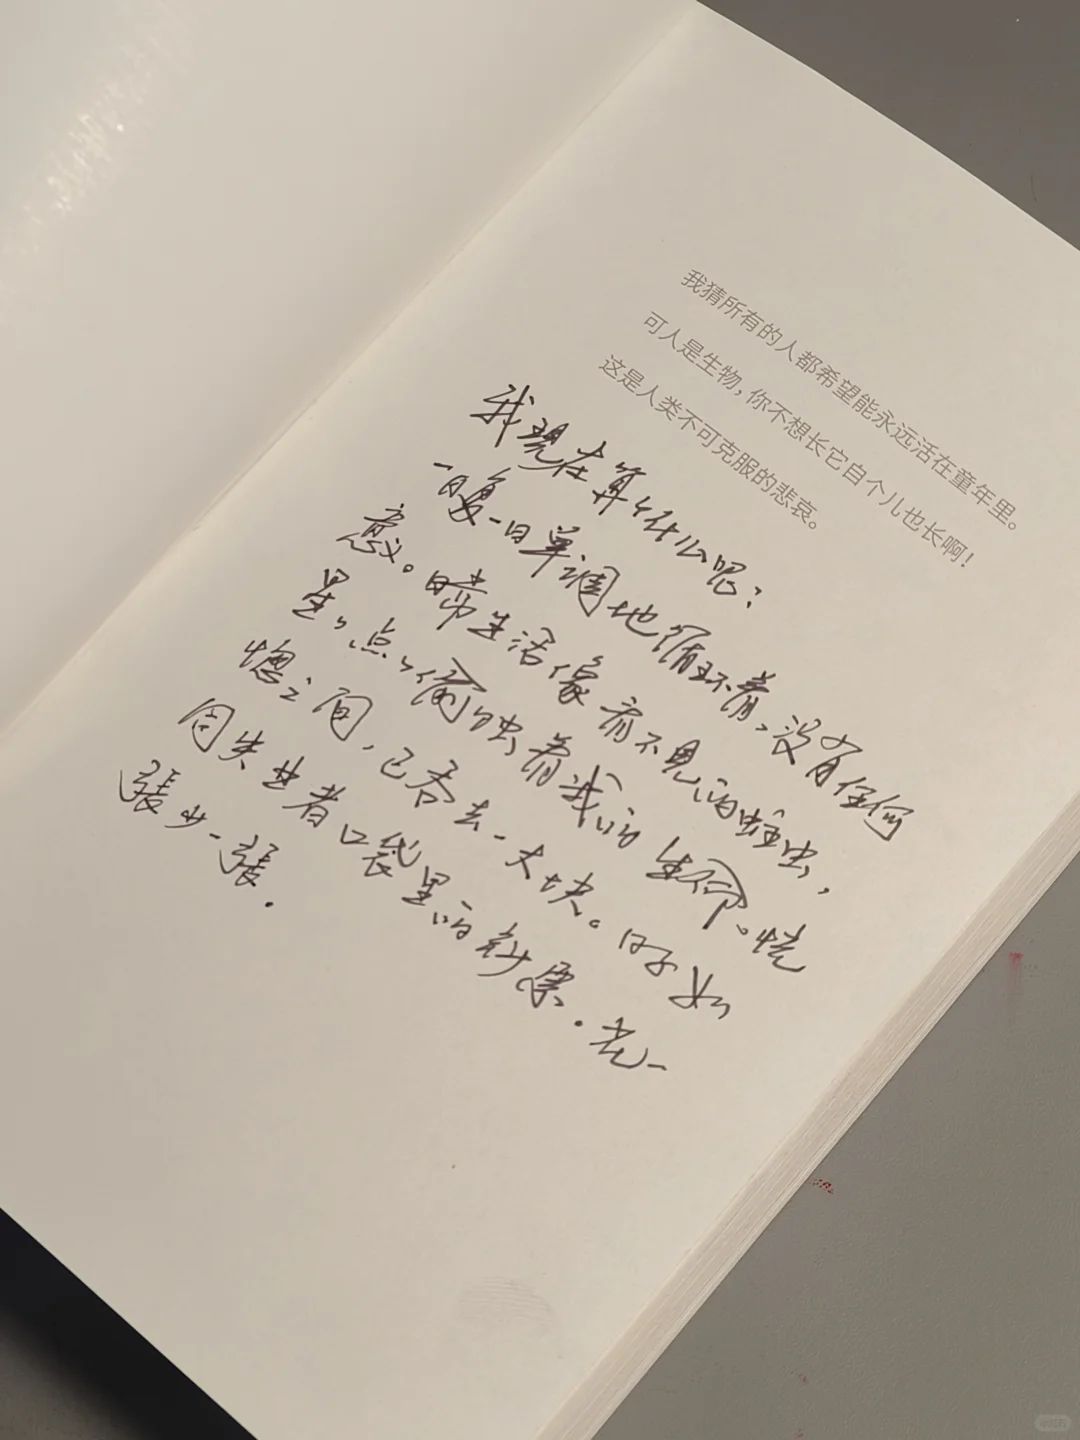 我猜所有的人都希望能永远活在童年里。
可人是生物，你不想长它自个儿也长啊！
这是人类不可克服的悲哀。
我现在算什么呢？
一日复一日单调地循环着，没有任何
意义。日常生活像看不见的蛀虫，
星星点点偷蚀着我的生命。恍
惚之间，已吞去一大块。日子如
同失业者口袋里的钞票。花一
張少一張.